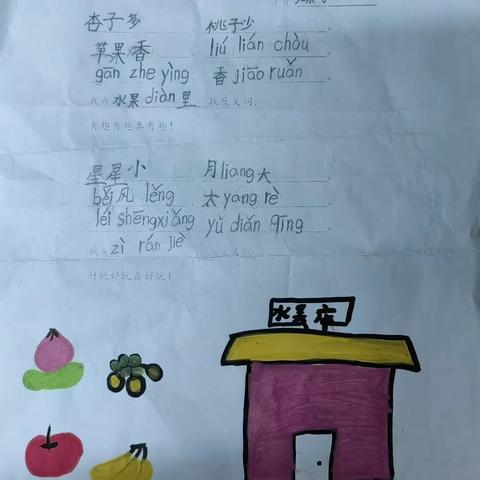 杏子多 桃子少
苹果香 liú lián chòu
gān zhe yìng 香 jiāo ruǎn
我在水果diàn里 找反义词,
有趣有趣真有趣!
星星小 月liang大
běi风 lěng 太yáng rè
léi shēngxiǎng yǔ diǎn qīng
我在zì rán jiè
好玩好玩真好玩!
水果店